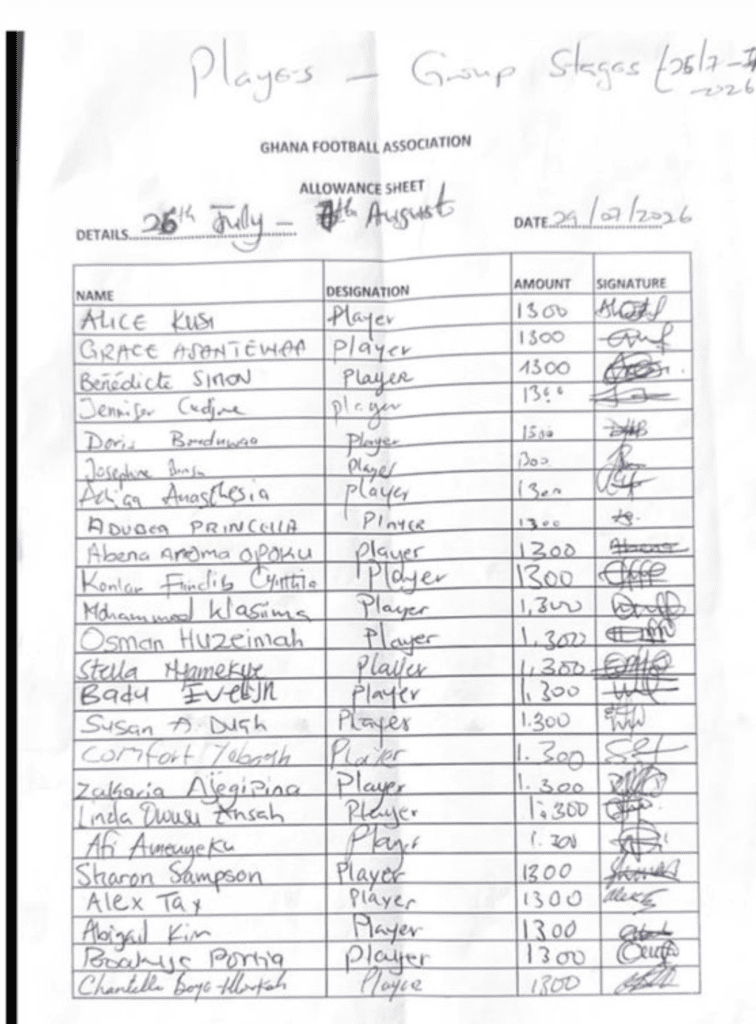 Players - Group Stages (25/7 -
2026
GHANA FOOTBALL ASSOCIATION
ALLOWANCE SHEET
DETAILS 26th July - 7th August DATE 29/07/2026
NAME DESIGNATION AMOUNT SIGNATURE
ALICE KUSI Player 1300
GRACE ASANTEWAA Player 1300
Benédicte SIMON Player 1300
Jennifer Cudjoe player 1300
Doris Boaduwaa Player 1300
Josephine Player 1300
Anasthesia player 1300
ADUBEA PRINCELLA Player 1300
Abena Anoma OPOKU Player 1300
Konlan Cynthia Player 1300
Mohammed Wasiima Player 1,300
Osman Huzeimah Player 1,300
Stella Nyamekye Player 1,300
Badu Evelyn Player 1,300
Susan A. Duah Player 1.300
Comfort Yeboah Player 1.300
Zakaria Player 1.300
Linda Owusu Ansah Player 1.300
Afi Amenyeku Player 1.300
Sharon Sampson Player 1300
Alex Tay Player 1300
Abigail Kim Player 1300
Boakye Portia Player 1300
Chantelle Boye-Hlorkah Player 1300